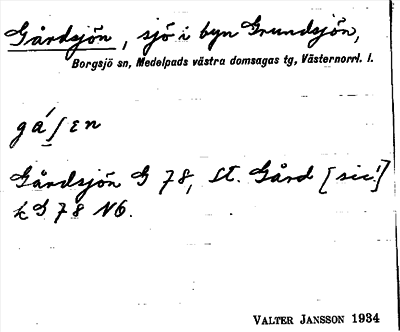 Gårdsjön, sjö i byn Grundsjön,
Borgsjö sn, Medelpads västra domsagas tg, Västernorrl. l.
gá̱ʃɛn
Gårdsjön G 78, St. Gård [sic!]
k G 78 NO.
VALTER JANSSON 1934